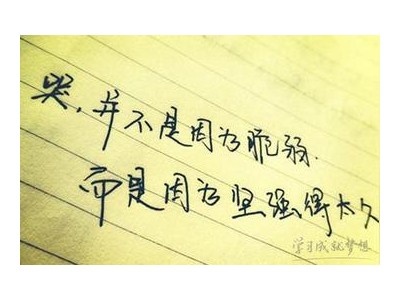 哭,并不是因为脆弱.
而是因为坚强得太久
学习成就梦想